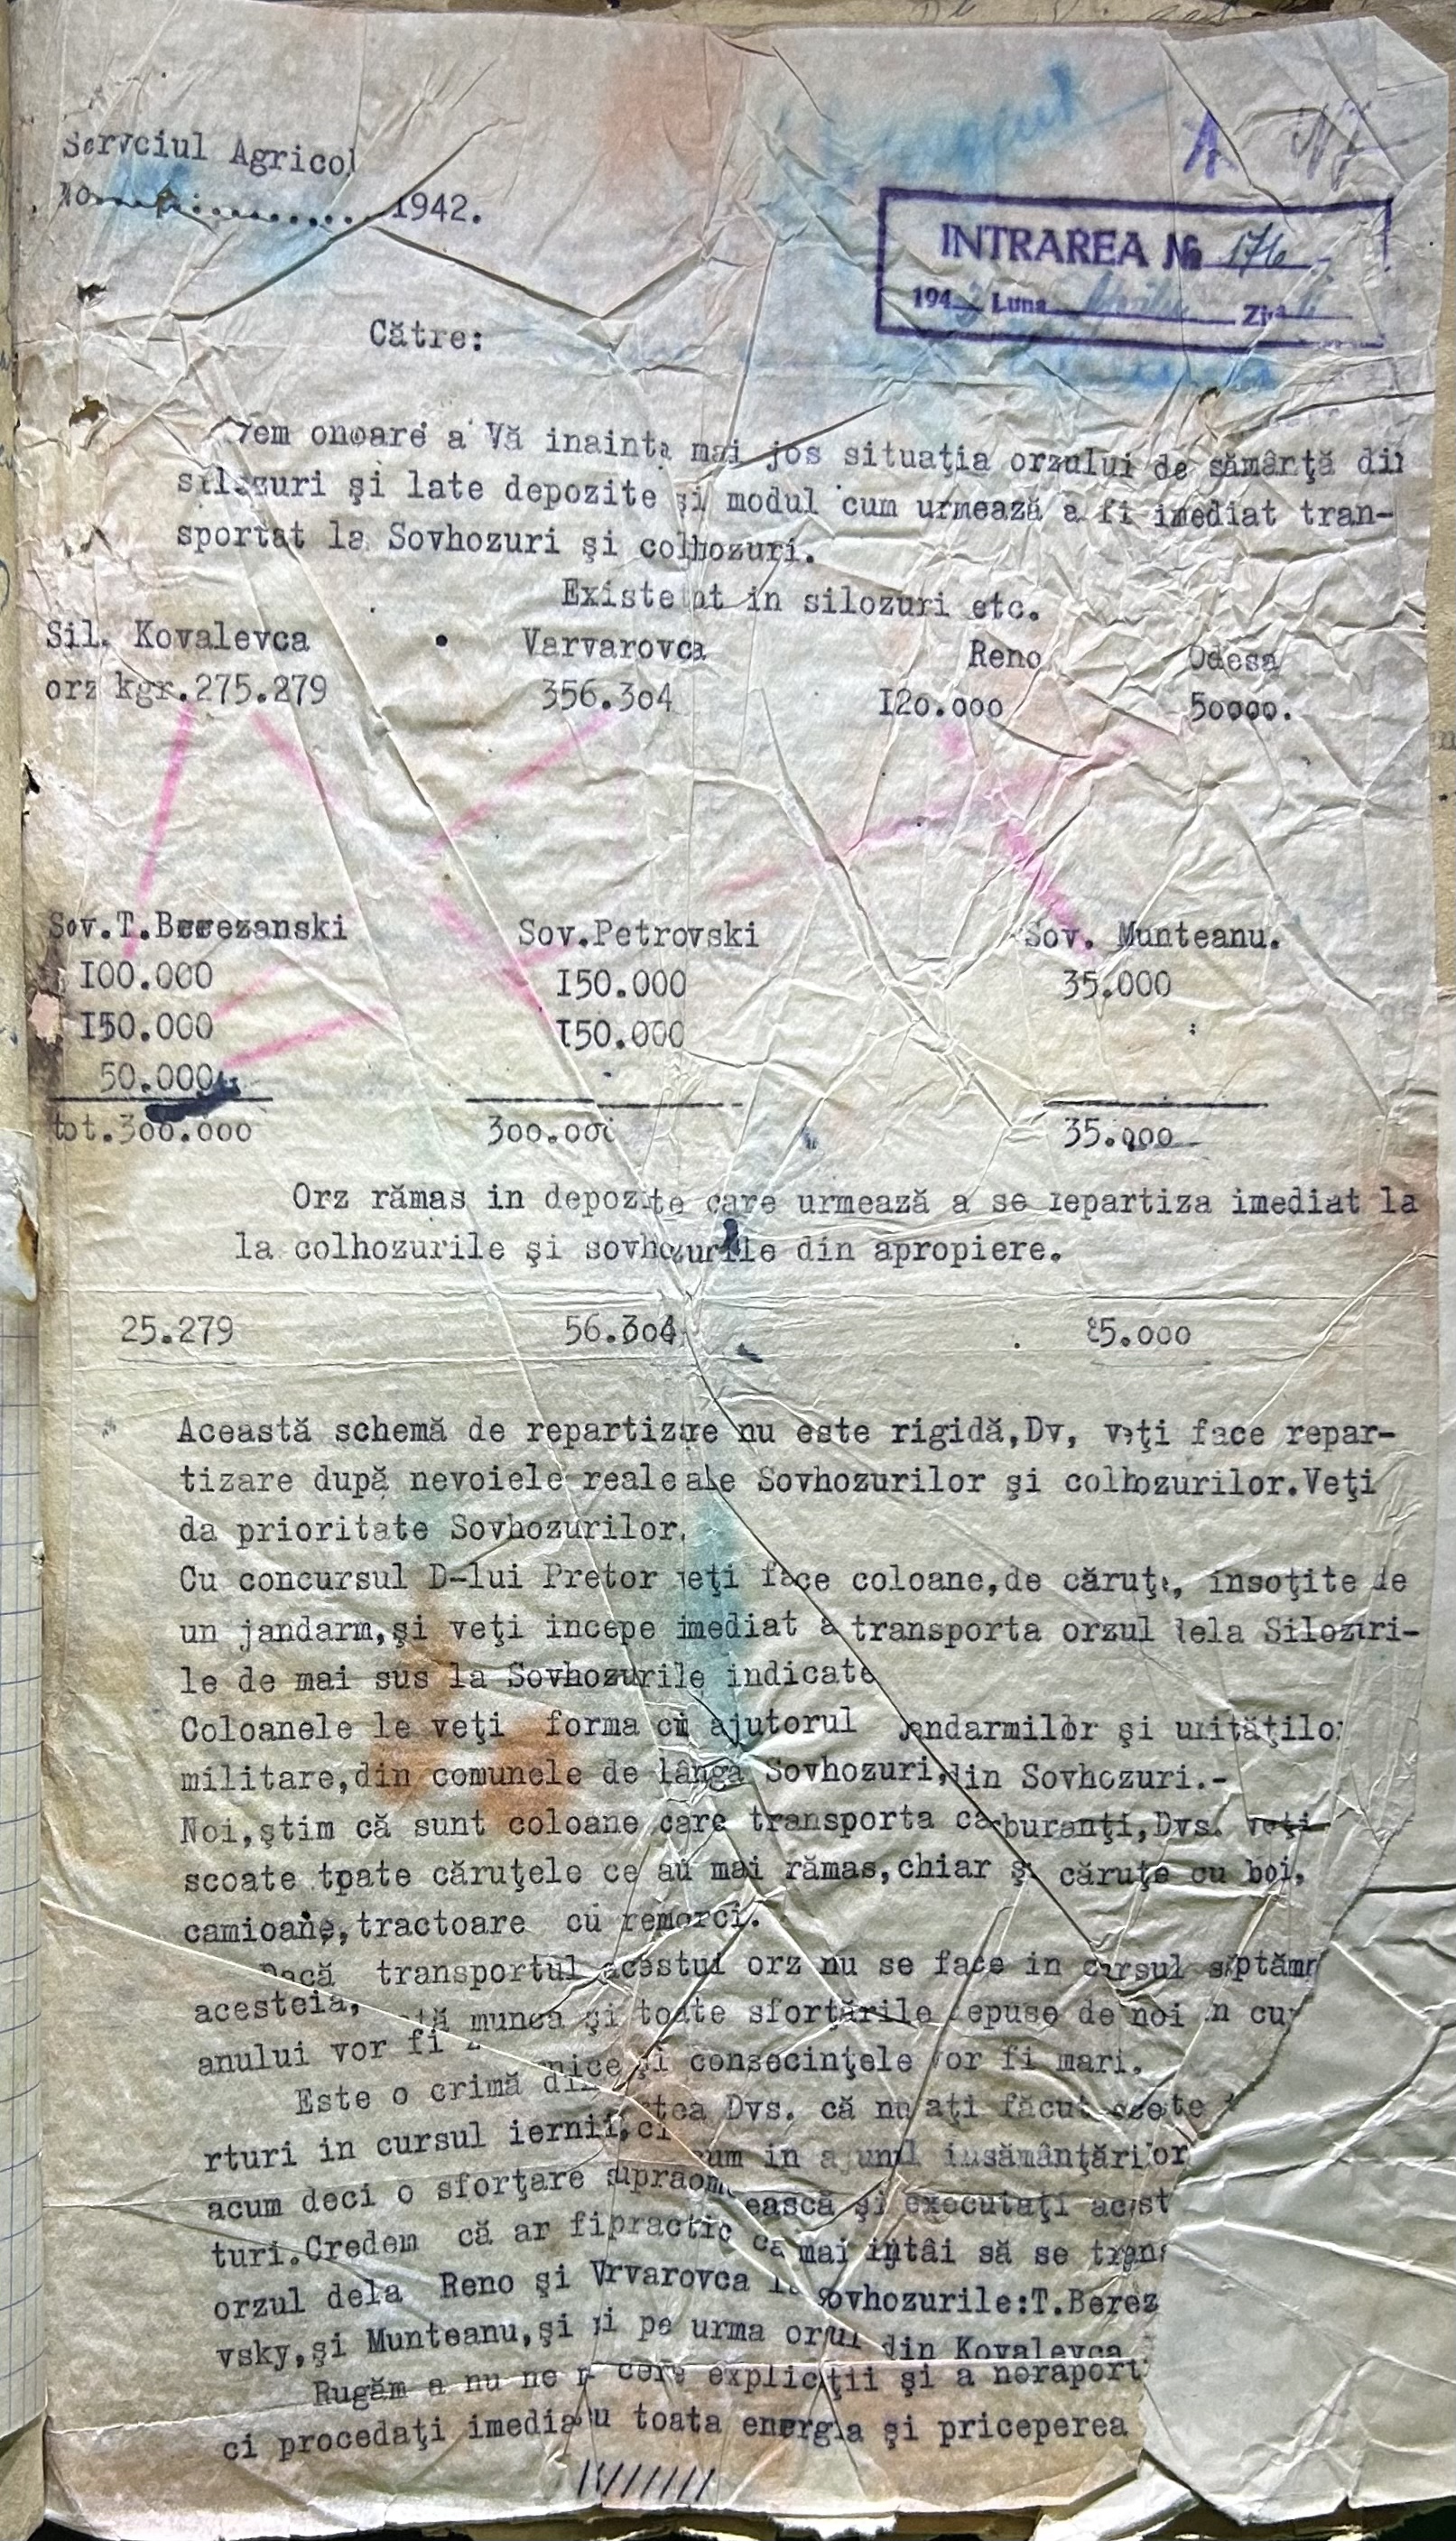 Servciul Agricol
No 1942.
INTRAREA № 176
194 Luna Ziua
Către:
vem onoare a Vă inainta mai jos situaţia orzului de sămânţă din
silozuri şi late depozite şi modul cum urmează a fi imediat tran-
sportat la Sovhozuri şi colhozuri.
Existent in silozuri etc.
Sil. Kovalevca Varvarovca Reno Odesa
orz kgr.275.279 356.3o4 I20.000 50000.
Sov.T.Berezanski Sov.Petrovski Sov. Munteanu.
I00.000 I50.000 35.000
I50.000 I50.000
50.000
tot.300.000 300.000 35.000
Orz rămas in depozite care urmează a se repartiza imediat la
la colhozurile şi sovhozurile din apropiere.
25.279 56.3o4 5.000
Această schemă de repartizare nu este rigidă,Dv, veţi face repar-
tizare după nevoiele reale ale Sovhozurilor şi colhozurilor.Veţi
da prioritate Sovhozurilor.
Cu concursul D-lui Pretor veţi face coloane,de căruţe, insoţite de
un jandarm,şi veţi incepe imediat a transporta orzul dela Silozuri-
le de mai sus la Sovhozurile indicate
Coloanele le veţi forma cu ajutorul jendarmilor şi unităţilor
militare,din comunele de lângă Sovhozuri,din Sovhozuri.-
Noi,ştim că sunt coloane care transporta carburanţi,Dvs. veţi
scoate toate căruţele ce au mai rămas,chiar şi căruţe cu boi,
camioane,tractoare cu remorci.
Dacă transportul acestui orz nu se face in cursul săptămn
acesteia, tă munca şi toate sforţările depuse de noi in cur
anului vor fi nice şi consecinţele vor fi mari.
Este o crimă din rtea Dvs. că nu aţi făcut aceste
rturi in cursul iernii,ci cum in ajunul insămânţărilor
acum deci o sforţare supraomenească şi executaţi acest
turi.Credem că ar fipractic ca mai intâi să se trans
orzul dela Reno şi Vrvarovca la Sovhozurile:T.Berez
vsky,şi Munteanu,şi pe urma orzul din Kovalevca
Rugăm a nu ne cere explicţii şi a neraport
ci procedaţi imedia u toata energia şi priceperea